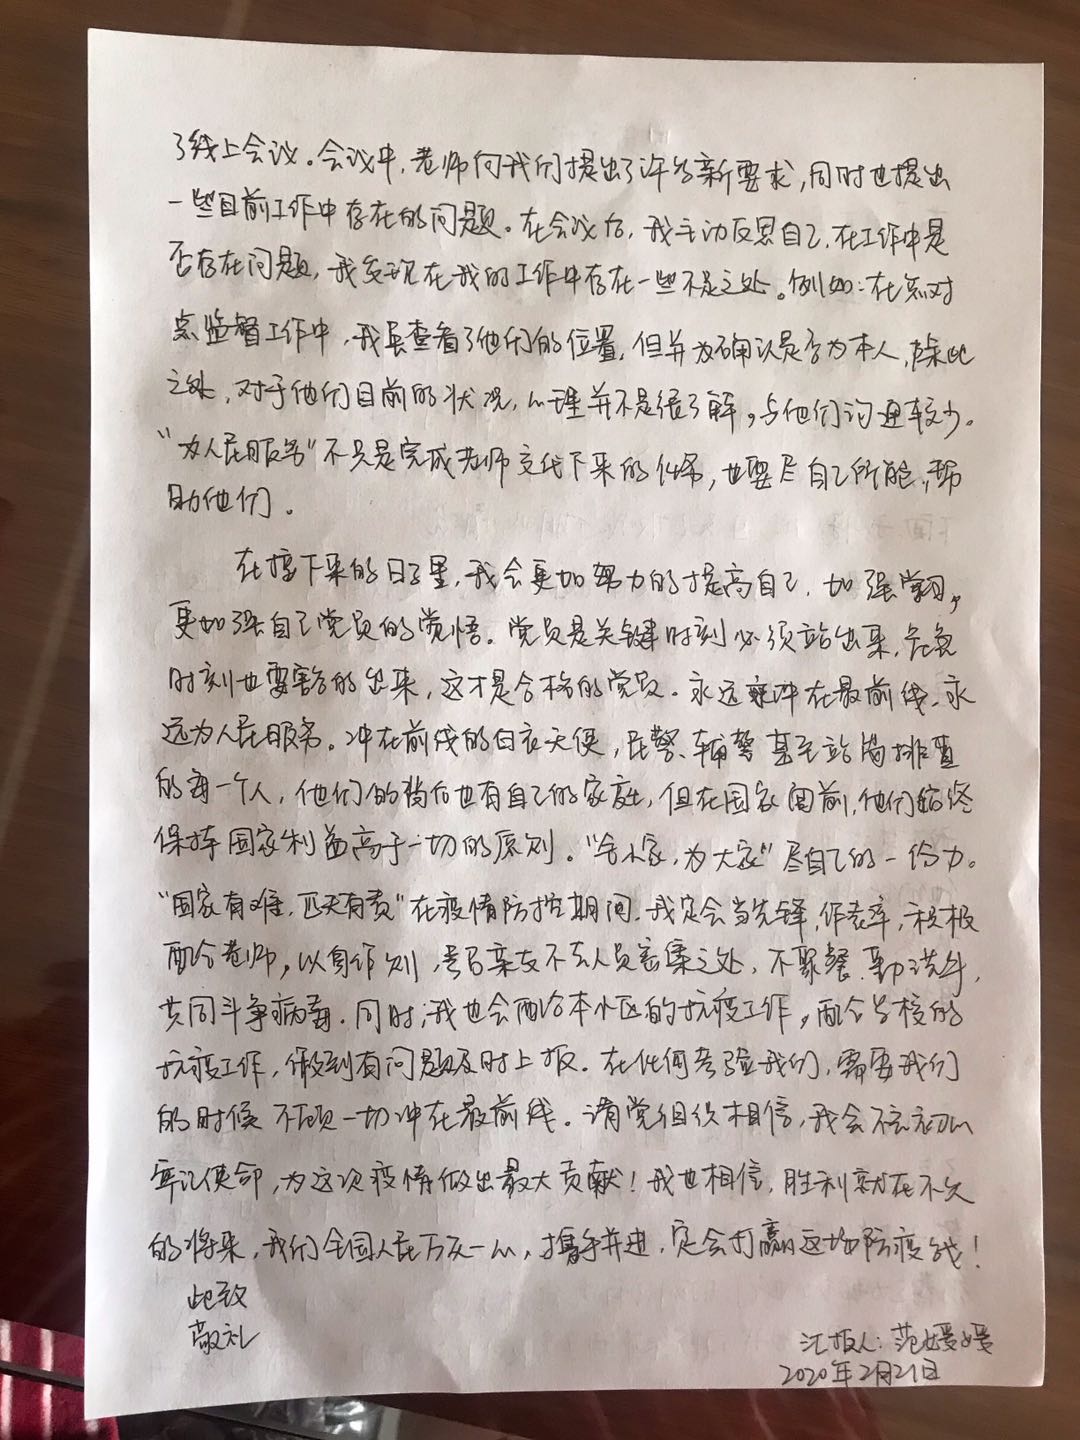 了线上会议。会议中,老师向我们提出了许多新要求,同时也提出
一些目前工作中存在的问题。在会议后,我主动反思自己,在工作中是
否存在问题,我发现在我的工作中存在一些不足之处。例如:在点对
点监督工作中,我虽查看了他们的位置,但并为确认是否为本人,除此
之外,对于他们目前的状况,心理并不是很了解,与他们沟通较少。
“为人民服务”不只是完成老师交代下来的任务,也要尽自己所能,帮
助他们。
在接下来的日子里,我会更加努力的提高自己,加强学习,
更加强自己党员的觉悟。党员是关键时刻必须站出来,危急
时刻也要豁的出来,这才是合格的党员。永远冲在最前线,永
远为人民服务。冲在前线的白衣天使,民警、辅警甚至站岗排查
的每一个人,他们的背后也有自己的家庭,但在国家面前,他们始终
保持国家利益高于一切的原则。“舍小家,为大家”尽自己的一份力。
“国家有难,匹夫有责”在疫情防控期间,我定会当先锋,作表率,积极
配合老师,以身作则,号召亲友不去人员密集之处,不聚餐,勤洗手,
共同斗争病毒。同时,我也会配合本小区的抗疫工作,配合学校的
抗疫工作,做到有问题及时上报。在任何考验我们,需要我们
的时候不顾一切冲在最前线。请党组织相信,我会不忘初心
牢记使命,为这次疫情做出最大贡献!我也相信,胜利就在不久
的将来,我们全国人民万众一心,携手并进,定会打赢这场防疫战!
此致
敬礼
汇报人:范媛媛
2020年2月21日